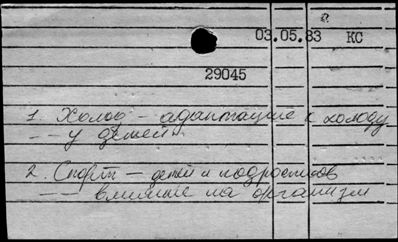 03.05.83 КС
29045
1 Холод – адаптация к холоду
–– у детей
2. Спорт – детей и подростков
–– влияние на организм